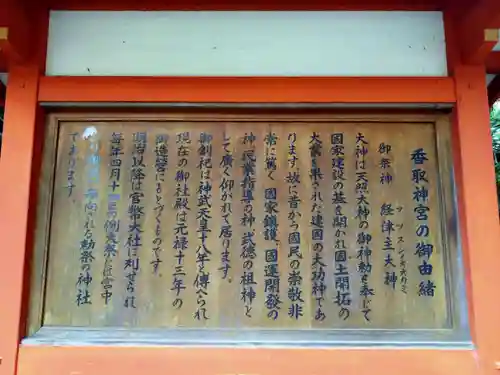 香取神宮の御由緒
御祭神 経津主大神
フツヌシノオオカミ
大神は天照大神の御神勅を奉じて
國家建設の基を開かれ國土開拓の
大業を果された建国の大功神であ
ります故に昔から國民の崇敬非
常に篤く國家鎮護、國運開發の
神、民業指導の神、武徳の祖神と
して廣く仰がれて居ります。
御創祀は神武天皇十八年と傳へられ
現在の御社殿は元禄十三年の
御造營にもとづくものです。
明治以降は官幣大社に列せられ
毎年四月十四日の例祭には宮中
から御使が参向される勅祭の神社
であります。